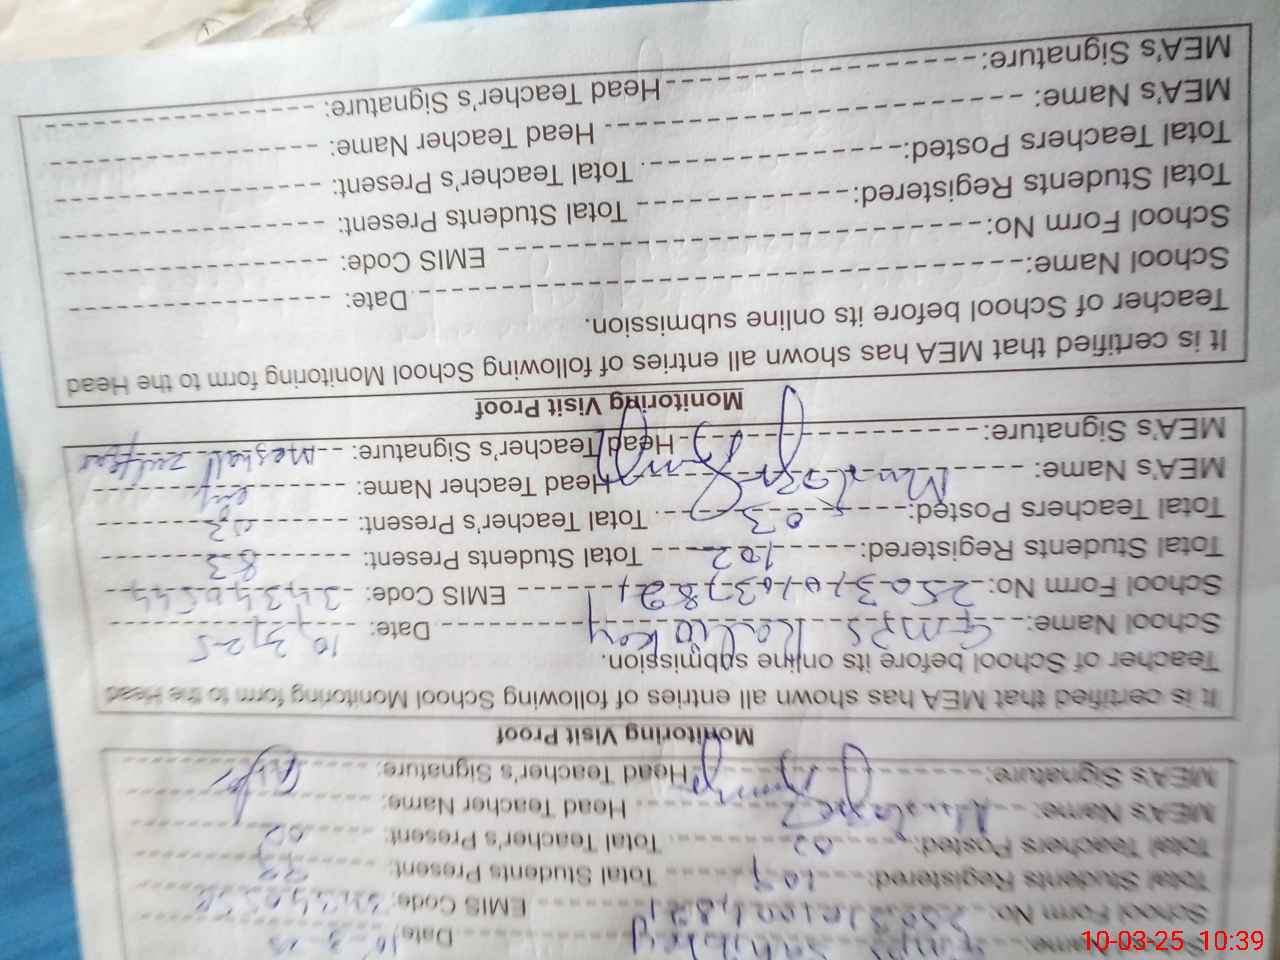 School Name: Date: 10-3-25
School Form No: EMIS Code:
Total Students Registered: 107 Total Students Present:
Total Teachers Posted: 02 Total Teacher's Present: 02
MEA's Name: Mustafa Head Teacher Name:
MEA's Signature: Head Teacher's Signature:
Monitoring Visit Proof
It is certified that MEA has shown all entries of following School Monitoring form to the Head
Teacher of School before its online submission.
School Name: GMPS Date: 10,3,25
School Form No: EMIS Code:
Total Students Registered: 102 Total Students Present: 83
Total Teachers Posted: 03 Total Teacher's Present: 03
MEA's Name: Head Teacher Name:
MEA's Signature: Head Teacher's Signature:
Monitoring Visit Proof
It is certified that MEA has shown all entries of following School Monitoring form to the Head
Teacher of School before its online submission.
School Name: Date:
School Form No: EMIS Code:
Total Students Registered: Total Students Present:
Total Teachers Posted: Total Teacher's Present:
MEA's Name: Head Teacher Name:
MEA's Signature: Head Teacher's Signature:
10-03-25 10:39